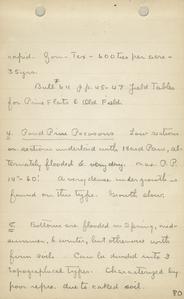 rapid. Gov- Tex - 600 ties per acre -
35 yrs.
Bull # 64 p.p. 45-47 Yield Tables
for Pine Flats & Old Field.
4. Pond Pine Pocosons Low sections
or sections underlaid with Hard Pan, al-
ternately flooded & very dry. max. D.P.
14"-60'. A very dense undergrowth is
found on this type. Growth slow.
5. Bottoms are flooded in Spring, mid-
summer, & winter, but otherwise north
farm soils. Can be divided into 3
topographical types. Characterized by
poor repro. due to caked soil.
PO